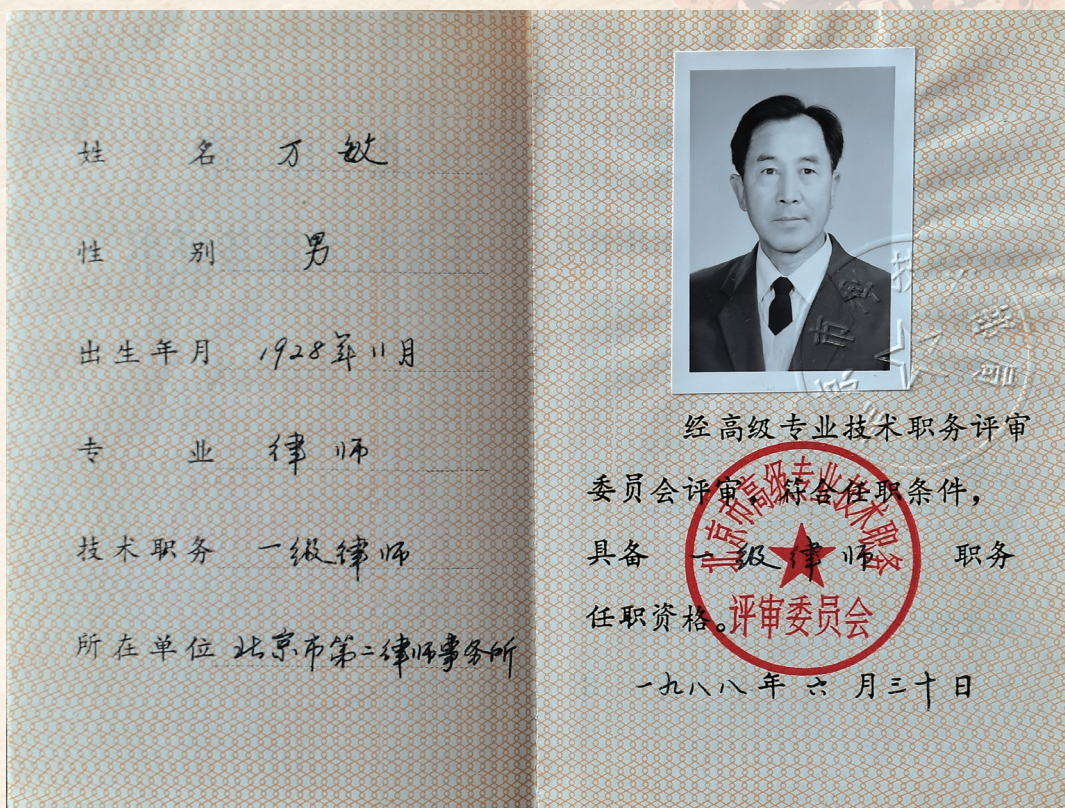 姓名 万敏
性别 男
出生年月 1928年11月
专业 律师
技术职务 一级律师
所在单位 北京市第二律师事务所
经高级专业技术职务评审
委员会评审,符合任职条件,
具备 一级律师 职务
任职资格。
一九八八年六月三十日
北京市高级专业技术职务
评审委员会